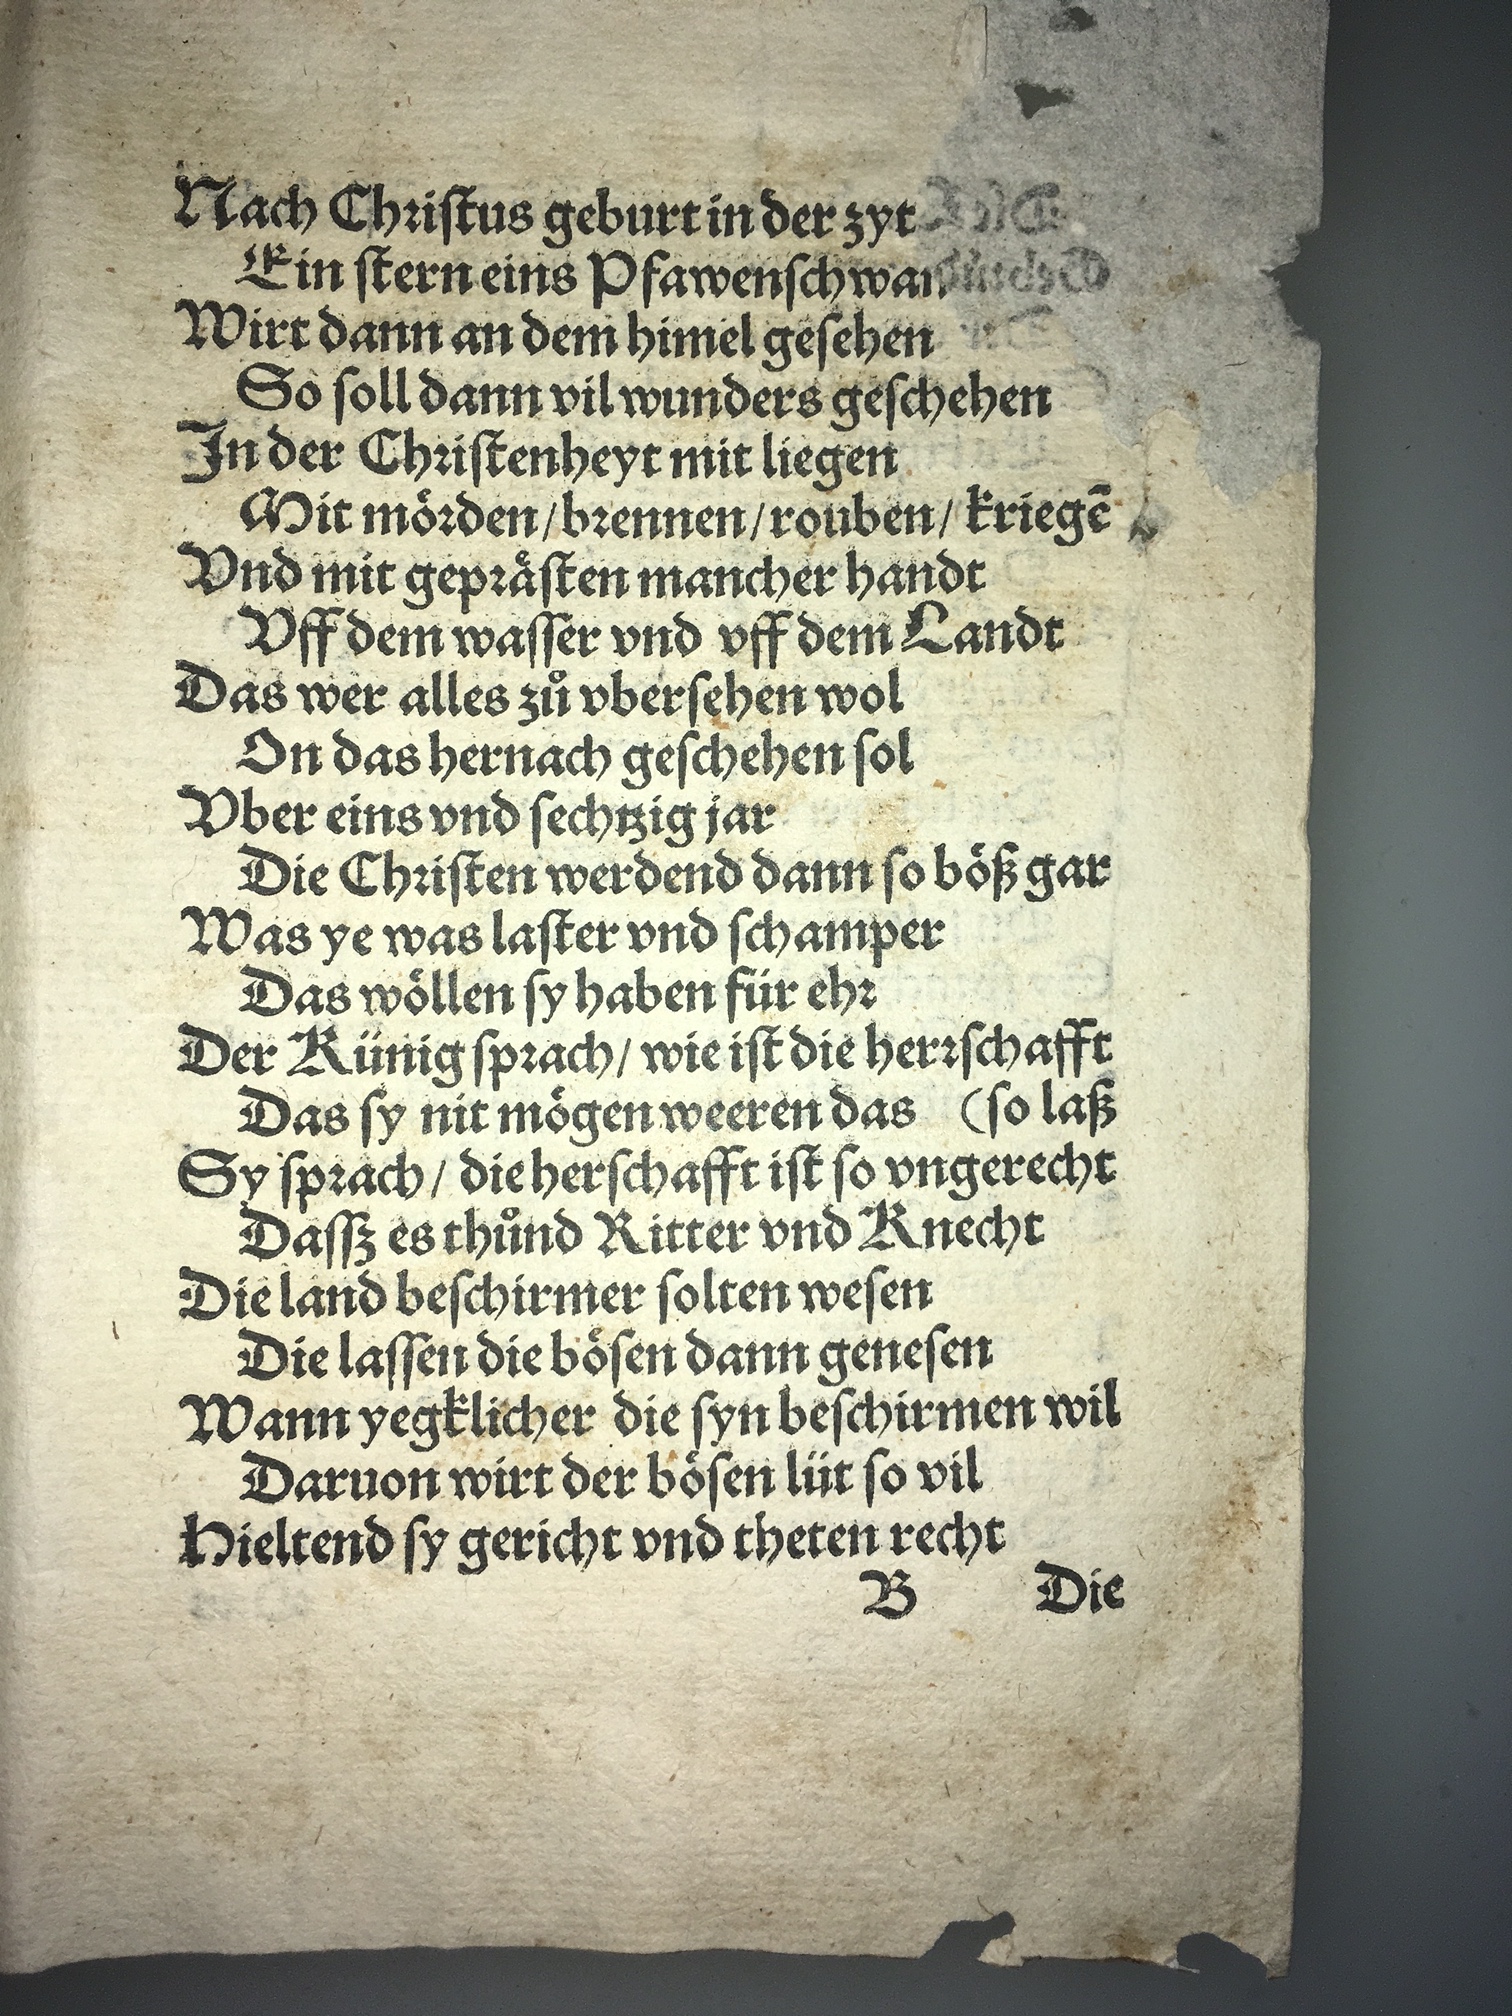 Nach Christus geburt in der zyt
Ein stern eins Pfawenschwan
Wirt dann an dem himel gesehen
So soll dann vil wunders geschehen
In der Christenheyt mit liegen
Mit mörden/brennen/rouben/kriegē
Vnd mit gepråsten mancher handt
Vff dem wasser vnd vff dem Landt
Das wer alles zů vbersehen wol
On das hernach geschehen sol
Vber eins vnd sechtzig jar
Die Christen werdend dann so böß gar
Was ye was laster vnd schamper
Das wöllen sy haben für ehr
Der Künig sprach/ wie ist die herrschafft
Das sy nit mögen weeren das (so laß
Sy sprach/ die herschafft ist so vngerecht
Dassz es thůnd Ritter vnd Knecht
Die land beschirmer solten wesen
Die lassen die bösen dann genesen
Wann yegklicher die syn beschirmen wil
Daruon wirt der bösen lüt so vil
Hieltend sy gericht vnd theten recht
B Die